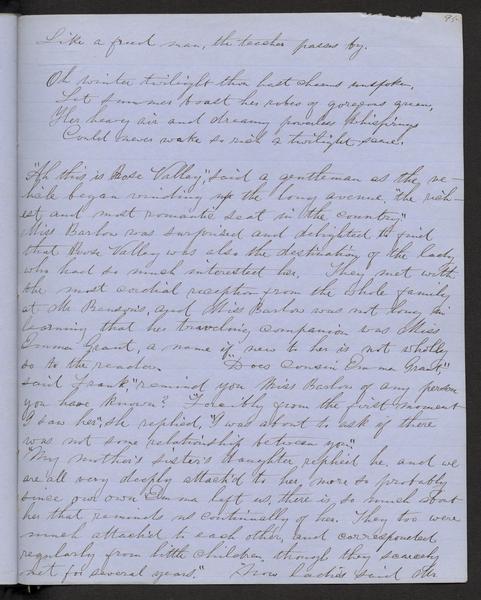 95
Like a freed man, the teacher passes by.
Oh winter twilight thou hast charms unspoken,
Let summer boast her robes of gorgeous green,
Her heavy air and dreamy powerless whisperings
Could never wake so rich a twilight scene.
"Ah this is Rose Valley," said a gentleman as the ve-
hicle began winding up the long avenue, "the rich-
est and most romantic seat in the country"
Miss Barlow was surprised and delighted to find
that Rose Valley was also the destination of the lady
who had so much interested her. They met with
the most cordial reception from the whole family
at Mr Benson's, and Miss Barlow was not long in
learning that her traveling companion was Miss
Emma Grant, a name if new to her is not wholly
so to the reader. "Does cousin Emma Grant"
said Frank, "remind you Miss Barlow of any person
you have known? "Forcibly from the first moment
I saw her", she replied, "I was about to ask if there
was not some relationship between you"
"My mother's sister's daughter, replied he, and we
are all very deeply attach'd to her, more so probably
since our own Emma left us, there is so much about
her that reminds us continually of her. They too were
much attach'd to each other, and corresponded
regularly from little children though they scarcely
met for several years." "Now ladies said Mr